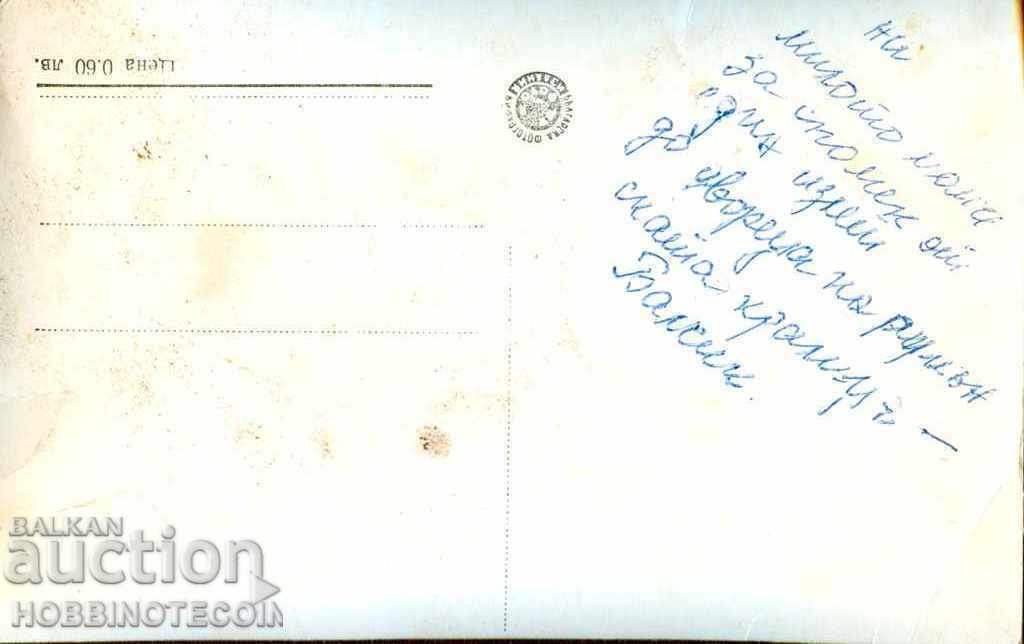 Цена 0.60 лв.
БЪЛГАРСКА ФОТОГРАФИЯ
ни
милото
за спомен от
един излет
до двореца на румън
ската кралица –
Балчик.
BALKAN
auction
HOBBINOTECOIN